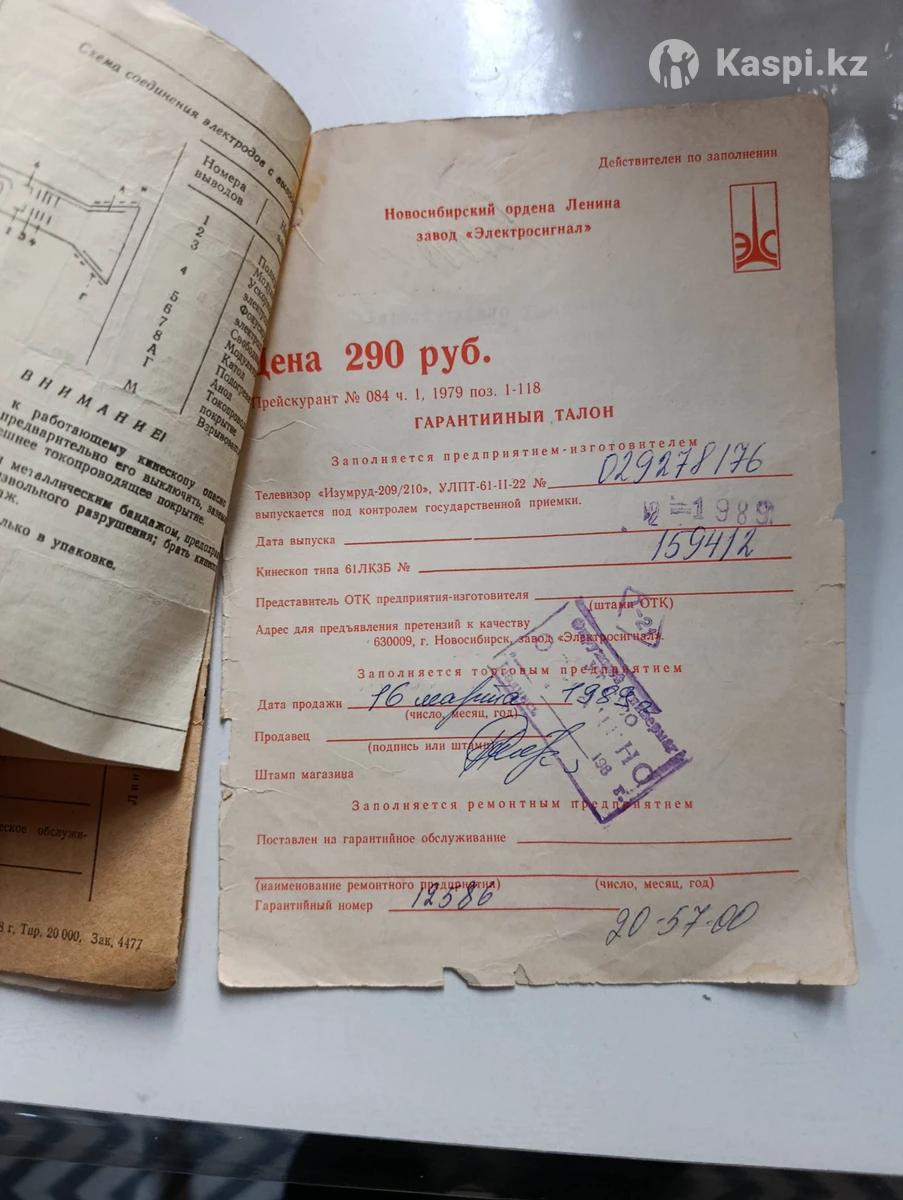 Kaspi.kz
Схема соединения электродов с
Номера
выводов
1
2
3
4
5
6
7
8
А
Г
М
Катод
Анод
покрытие
ВНИМАНИЕ!
к работающему кинескопу опасно
предварительно его выключить,
токопроводящее покрытие.
металлическим бандажом,
разрушения; брать
только в упаковке.
г, Тир. 20 000, Зак. 4477
Действителен по заполнении
Новосибирский ордена Ленина
завод «Электросигнал»
ЭС
Цена 290 руб.
Прейскурант № 084 ч. 1, 1979 поз. 1-118
ГАРАНТИЙНЫЙ ТАЛОН
Заполняется предприятием-изготовителем
Телевизор «Изумруд-209/210», УЛПТ-61-II-22 № 029278176
выпускается под контролем государственной приемки.
Дата выпуска 1989
Кинескоп типа 61ЛК3Б № 159412
Представитель ОТК предприятия-изготовителя
(штамп ОТК)
Адрес для предъявления претензий к качеству
630009, г. Новосибирск, завод «Электросигнал».
Заполняется торговым предприятием
Дата продажи 16 марта 1989г
(число, месяц, год)
Продавец
(подпись или штамп)
Штамп магазина
198 г.
Заполняется ремонтным предприятием
Поставлен на гарантийное обслуживание
(наименование ремонтного предприятия) (число, месяц, год)
Гарантийный номер 12586
20-57-00